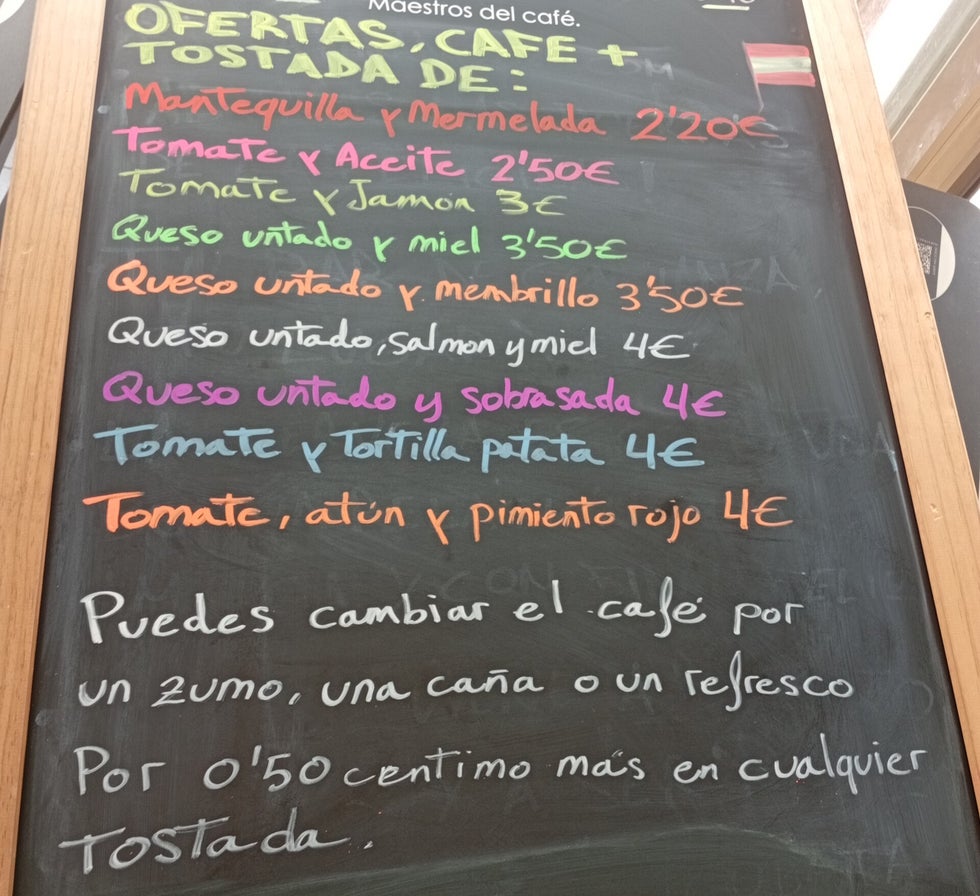 Maestros del café.
OFERTAS, CAFE +
TOSTADA DE:
Mantequilla y Mermelada 2'20€
Tomate y Aceite 2'50€
Tomate y Jamon 3€
Queso untado y miel 3'50€
Queso untado y membrillo 3'50€
Queso untado, salmon y miel 4€
Queso untado y sobrasada 4€
Tomate y Tortilla patata 4€
Tomate, atún y pimiento rojo 4€
Puedes cambiar el café por
un zumo, una caña o un refresco
Por 0'50 centimo más en cualquier
Tostada.